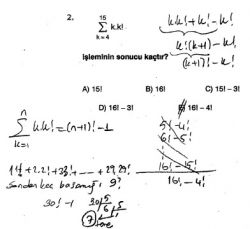 2.
15
∑ k.k!
k=4
işleminin sonucu kaçtır?
A) 15! B) 16! C) 15! - 3!
D) 16! - 3! E) 16! - 4!
k.k! + k! - k!
k!(k+1) - k!
(k+1)! - k!
n
∑ k k! = (n+1)! - 1
k=1
5! - 4!
6! - 5!
16! - 15!
16! - 4!
1.1! + 2.2! + 3.3! + ---- + 29.29!
Sondan kaç basamağı 9?
30! - 1
30 5
6 5
1
7 tane